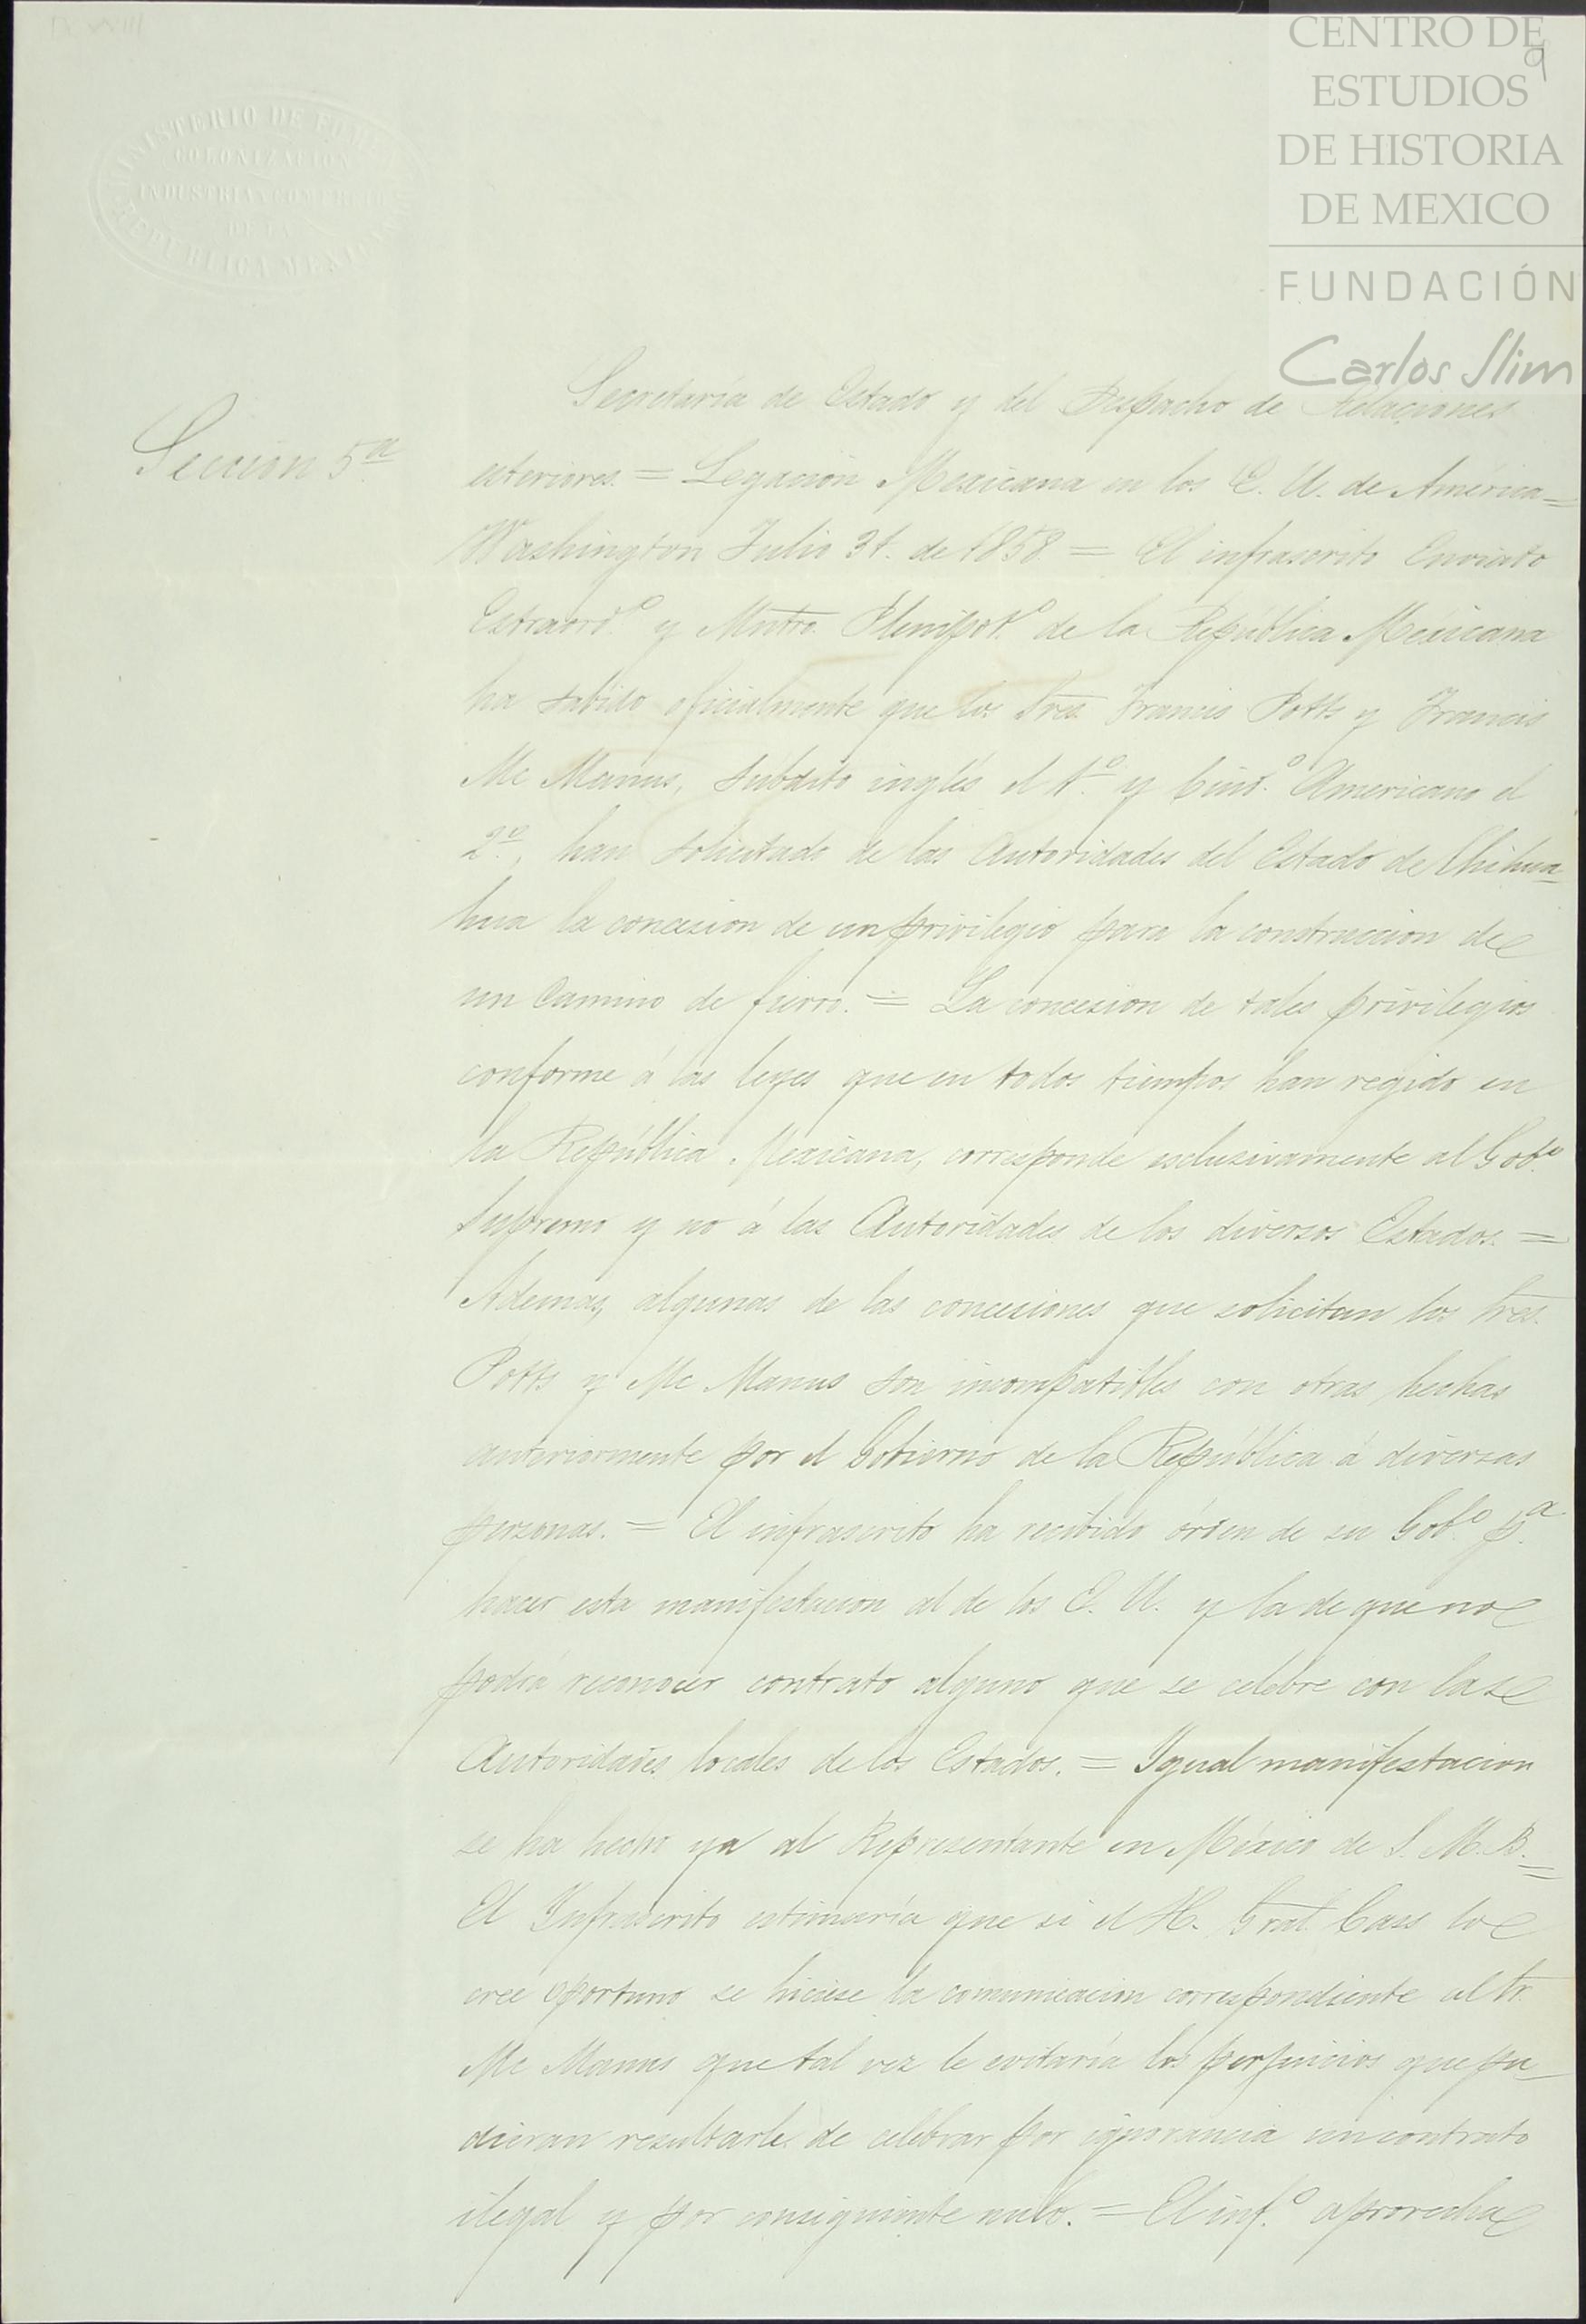 CENTRO DE
ESTUDIOS
DE HISTORIA
DE MEXICO
FUNDACIÓN
Carlos Slim
9
MINISTERIO DE FOMENTO
COLONIZACION
INDUSTRIA Y COMERCIO
DE LA
REPUBLICA MEXICANA
Seccion 5.ª
Secretaría de Estado y del Despacho de Relaciones
esteriores. = Legacion Mexicana en los E. U. de América =
Washington Julio 31. de 1858. = El infrascrito Enviado
Estraord.º y Mntro. Plenipot.º de la República Mexicana
ha sabido oficialmente que los Sres. Francis Potts y Francis
Mc Manus, subdito inglés el 1.º y Ciud.º Americano el
2.º, han solicitado de las Autoridades del Estado de Chihua-
hua la concesion de un privilegio para la construccion de
un Camino de fierro. = La concesion de tales privilegios
conforme á las leyes que en todos tiempos han regido en
la República Mexicana, corresponde esclusivamente al Gob.º
Supremo y no á las Autoridades de los diversos Estados. =
Ademas, algunas de las concesiones que solicitan los Sres.
Potts y Mc Manus son incompatibles con otras hechas
anteriormente por el Gobierno de la República á diversas
personas. = El infrascrito ha recibido órden de su Gob.º p.ª
hacer esta manifestacion al de los E. U. y la de que no
podrá reconocer contrato alguno que se celebre con las
Autoridades locales de los Estados. = Igual manifestacion
se ha hecho ya al Representante en México de S. M. B. =
El Infrascrito estimaría que si el H. Gral. Cass lo
cree oportuno se hiciese la comunicacion correspondiente al Sr.
Mc Manus que tal vez le evitaría los perjuicios que pu-
dieran resultarle de celebrar por ignorancia un contrato
ilegal y por consiguiente nulo. = El inf.º aprovecha